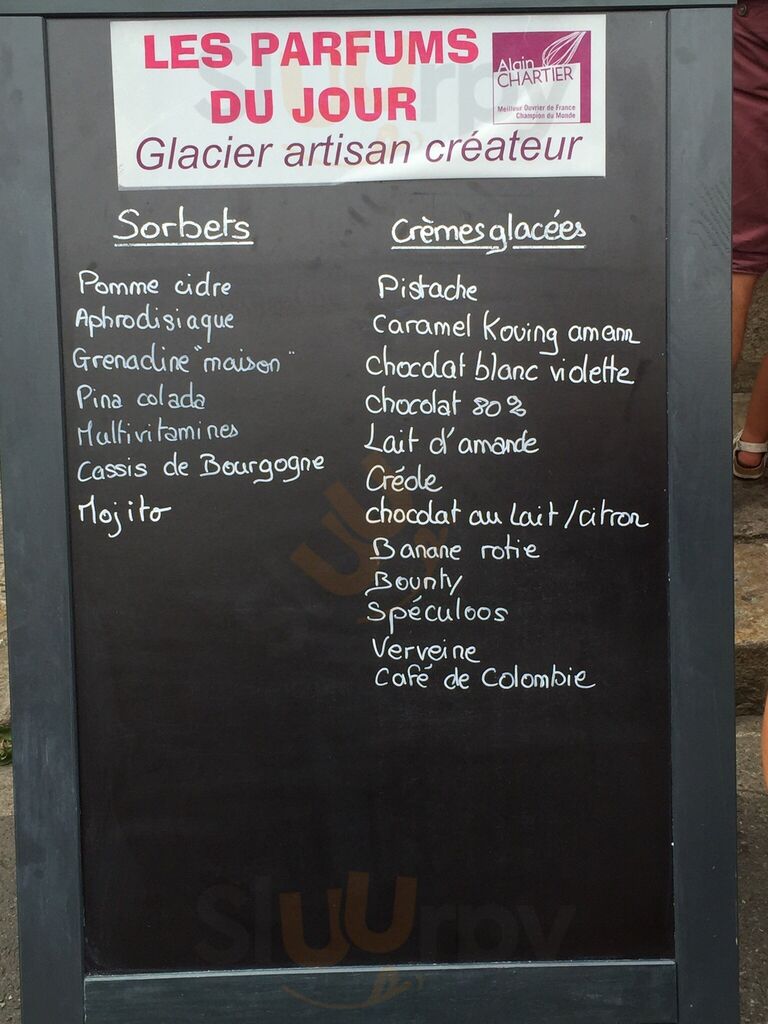 LES PARFUMS
DU JOUR
Glacier artisan créateur
Alain
CHARTIER
Meilleur Ouvrier de France
Champion du Monde
Sorbets
Pomme cidre
Aphrodisiaque
Grenadine "maison"
Pina colada
Multivitamines
Cassis de Bourgogne
Mojito
Crèmes glacées
Pistache
Caramel Kouing amann
Chocolat blanc violette
Chocolat 80%
Lait d'amande
Créole
chocolat au Lait / citron
Banane rotie
Bounty
Spéculoos
Verveine
Café de Colombie
Sluurpy